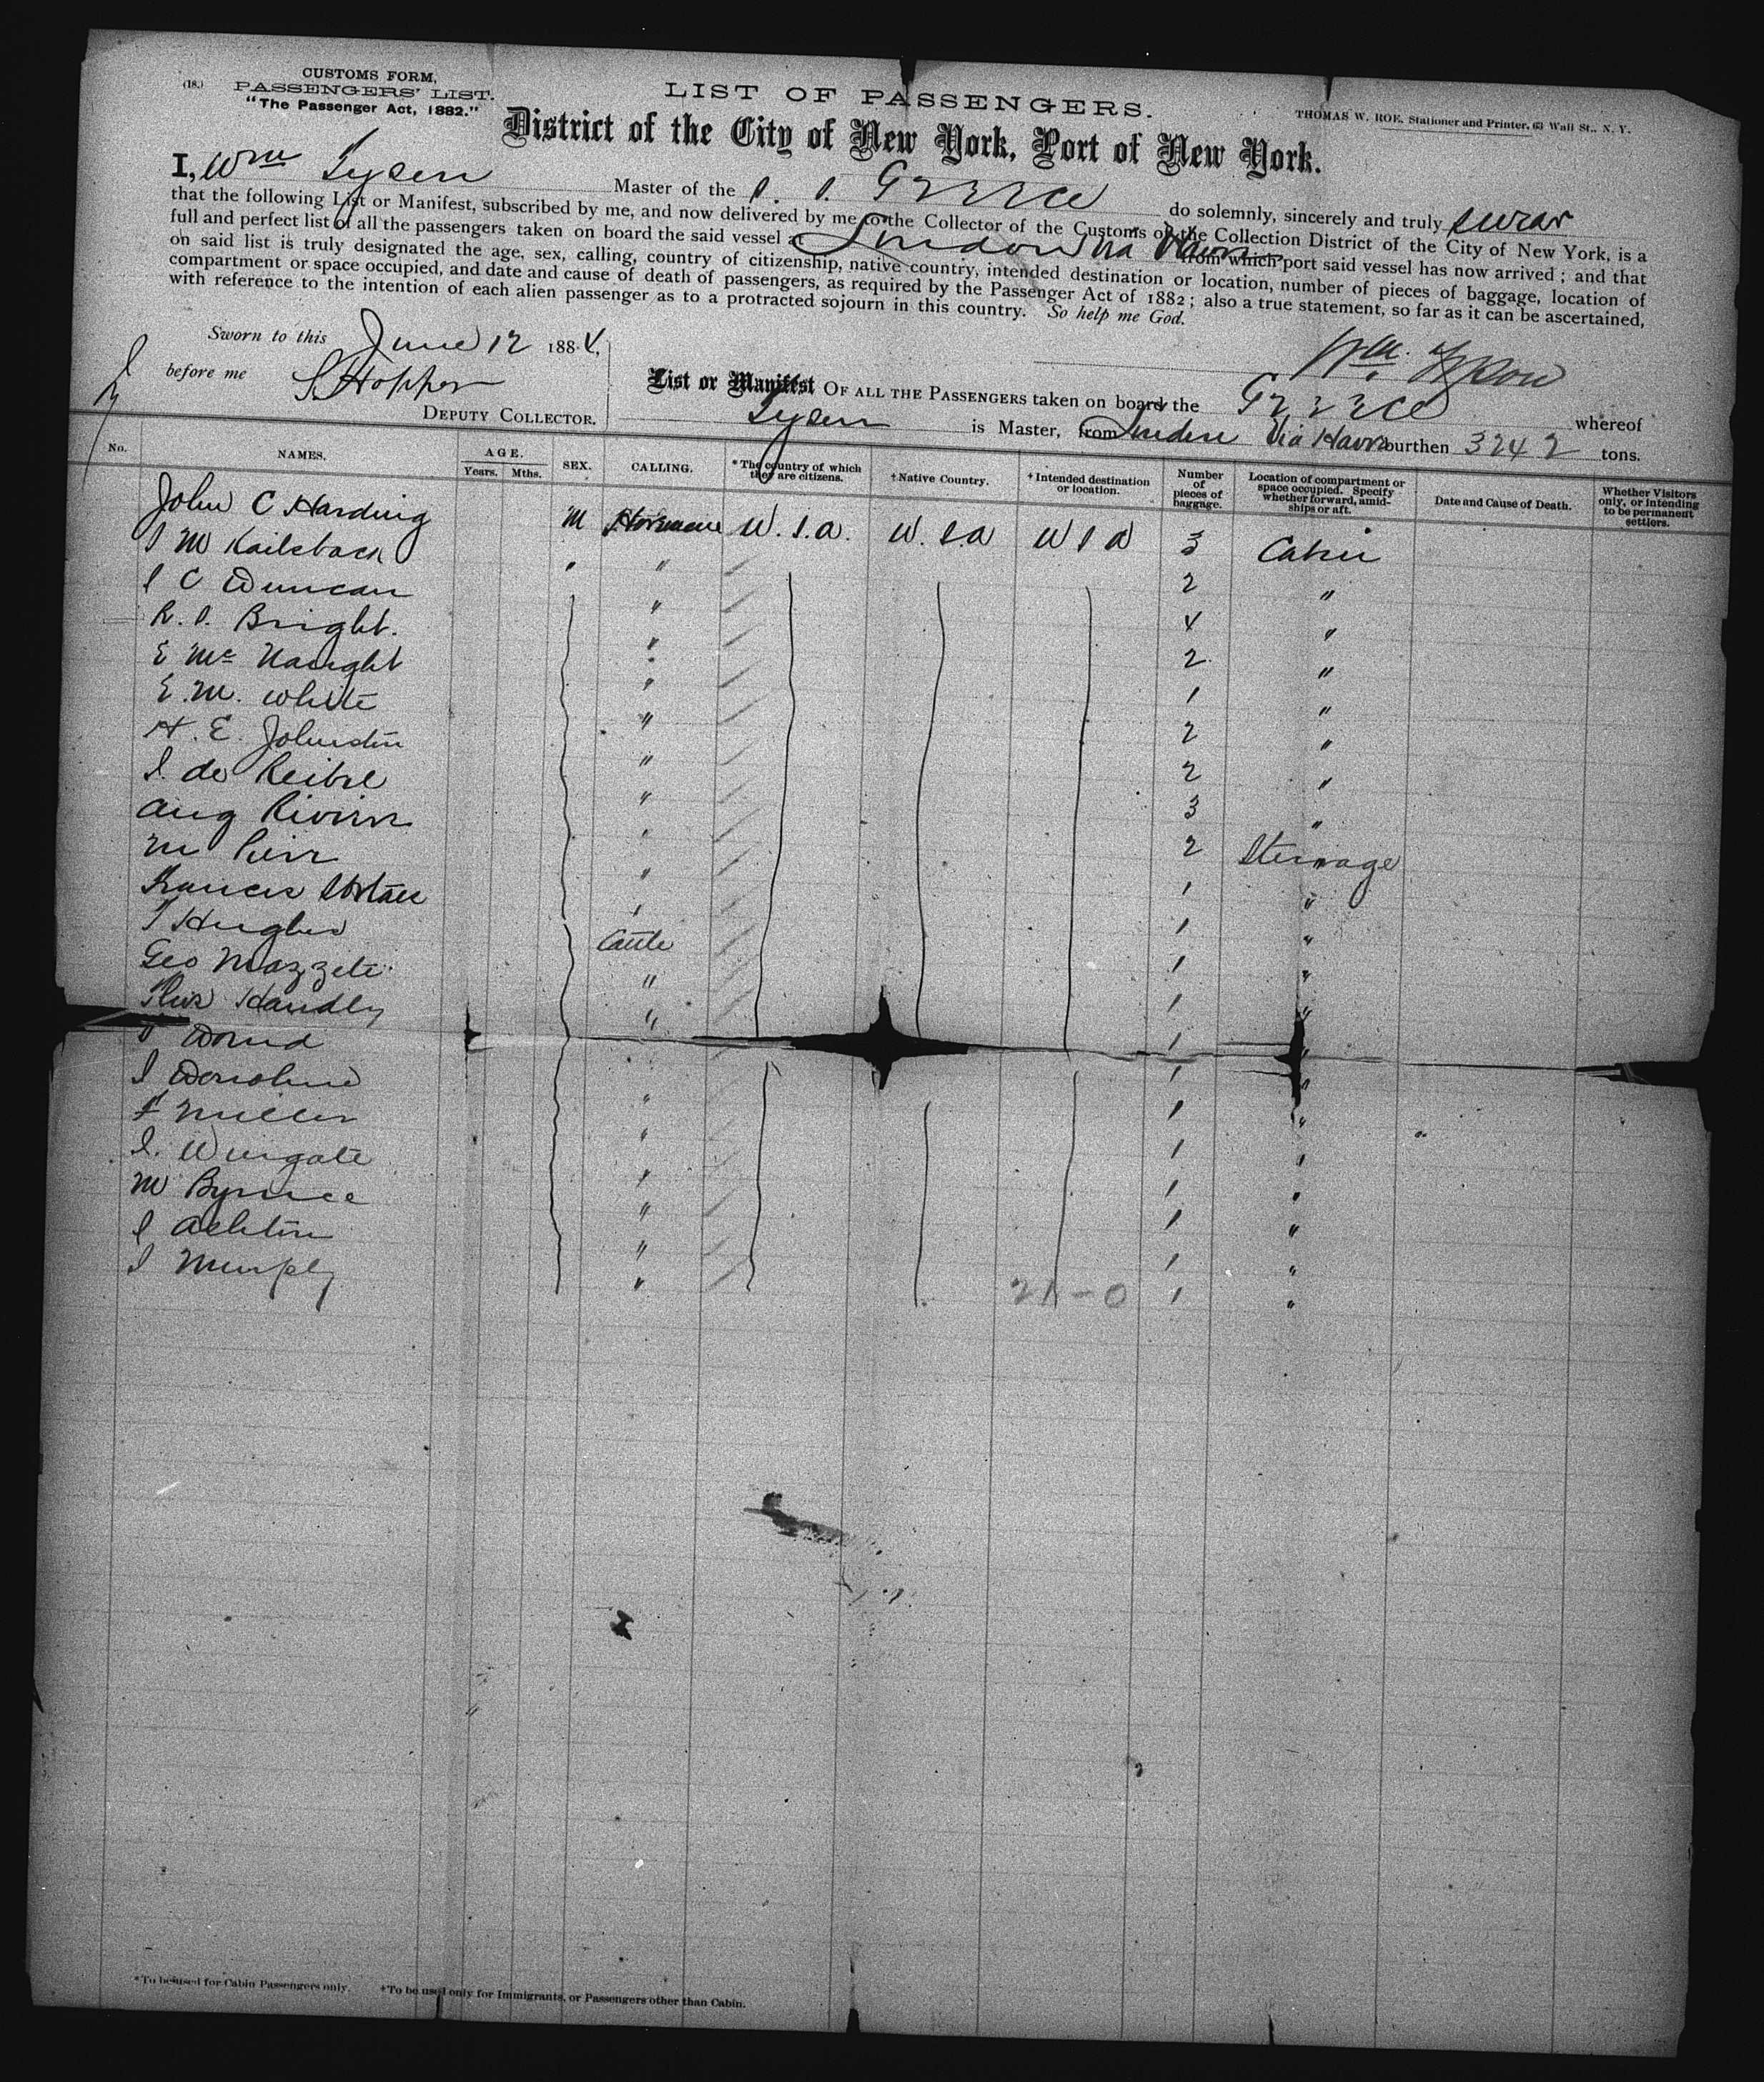 (18.)
CUSTOMS FORM,
PASSENGERS' LIST.
"The Passenger Act, 1882."
LIST OF PASSENGERS.
THOMAS W. ROE, Stationer and Printer, 63 Wall St., N. Y.
District of the City of New York, Port of New York.
I, Wm Tyson Master of the S. S. Greece do solemnly, sincerely and truly swear
that the following List or Manifest, subscribed by me, and now delivered by me to the Collector of the Customs of the Collection District of the City of New York, is a
full and perfect list of all the passengers taken on board the said vessel at London via Havre from which port said vessel has now arrived; and that
on said list is truly designated the age, sex, calling, country of citizenship, native country, intended destination or location, number of pieces of baggage, location of
compartment or space occupied, and date and cause of death of passengers, as required by the Passenger Act of 1882; also a true statement, so far as it can be ascertained,
with reference to the intention of each alien passenger as to a protracted sojourn in this country. So help me God.
Sworn to this June 12 1884,
Wm. Tyson
before me S. Hopper
DEPUTY COLLECTOR.
List or Manifest OF ALL THE PASSENGERS taken on board the Greece whereof
Tyson is Master, from London Via Havre burthen 3242 tons.
No. NAMES. AGE. Years. Mths. SEX. CALLING. *The country of which they are citizens. †Native Country. †Intended destination or location. Number of pieces of baggage. Location of compartment or space occupied. Specify whether forward, amidships or aft. Date and Cause of Death. Whether Visitors only, or intending to be permanent settlers.
John C Harding M U.S.A. U.S.A U S A 3 Cabin
M " " 2 "
C Duncan " 4 "
R. S. Bright. " 2 "
E Mc Naught " 1 "
E. M. White " 2 "
H. E. Johnston " 2 "
de " 3 "
Aug " 2 Steerage
M " 1 "
Francis " 1 "
T Hughes Cattle 1 "
Geo Mazzete " 1 "
Handly " 1 "
1 "
Donohue " 1 "
F Miller " 1 "
Wingate " 1 "
M Byrnce " 1 "
Ashton " 1 "
Murphy " 1 "
21-0
*To be used for Cabin Passengers only. †To be used only for Immigrants, or Passengers other than Cabin.